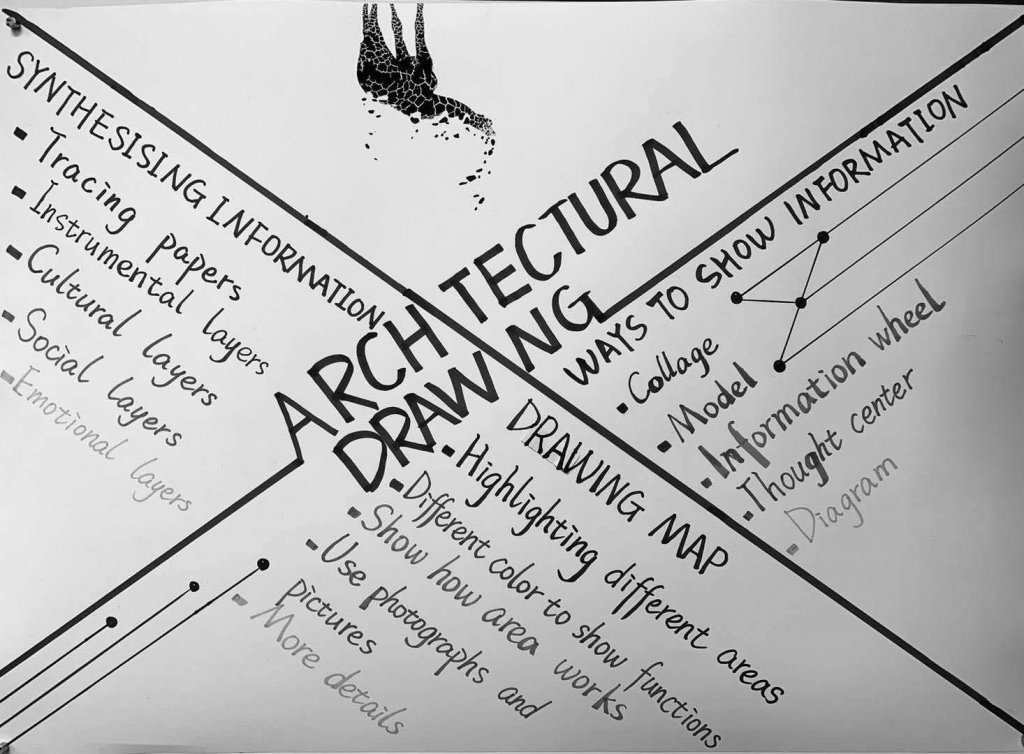 ARCHITECTURAL
DRAWING
SYNTHESISING INFORMATION
Tracing papers
Instrumental layers
Cultural layers
Social layers
Emotional layers
WAYS TO SHOW INFORMATION
Collage
Model
Information wheel
Thought center
Diagram
DRAWING MAP
Highlighting different areas
Different color to show functions
Show how area works
Use photographs and
pictures
More details